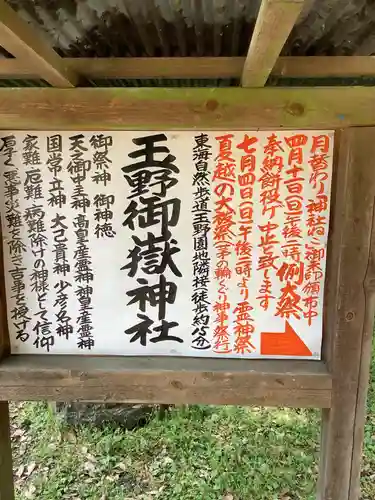 月替わり神社ご朱印頒布中
四月十一日(日)午後二時 例大祭
奉納餅投げ中止致します
七月四日(日)午後二時より 霊神祭
夏越の大祓祭(茅の輪くぐり神事祭行)
東海自然歩道玉野園地隣接(徒歩約15分)
玉野御嶽神社
御祭神 御神徳
天之御中主神 高皇産霊神 神皇産霊神
国常立神 大己貴神 少彦名神
家難 厄難 病難除けの神様として信仰
厚く 悪事災難を除き吉事を授ける